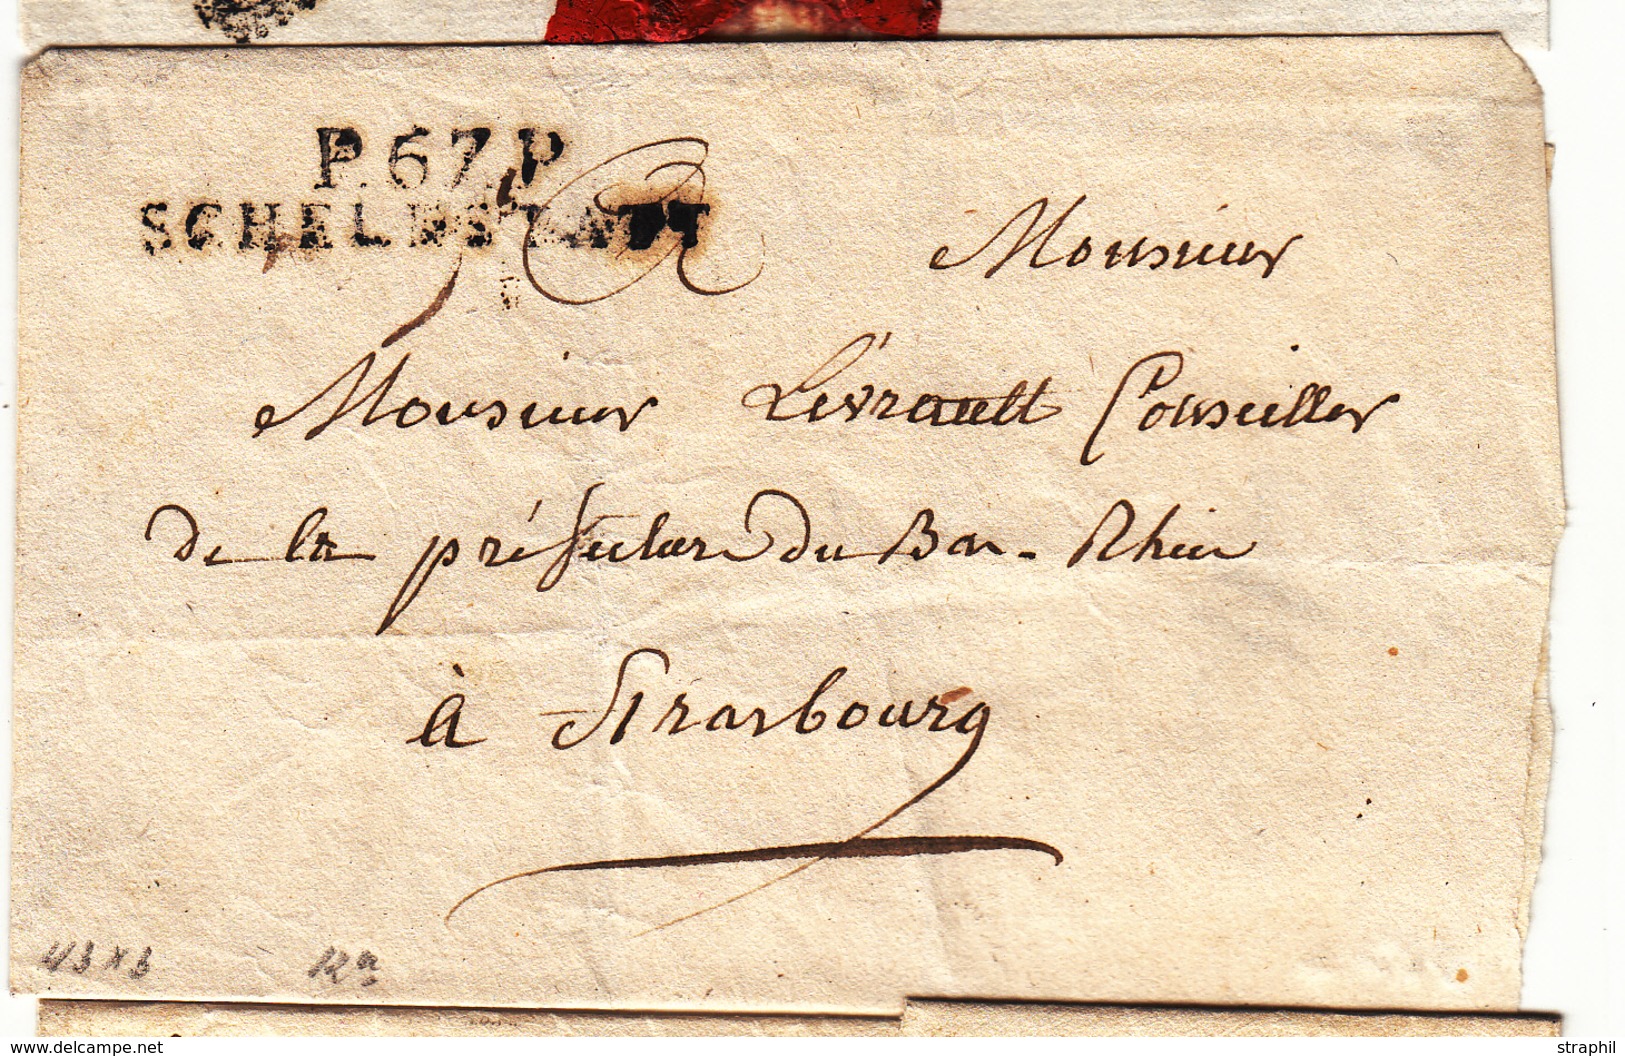 P.67.P
SCHELESTATT
Monsieur
Monsieur Levrault Conseiller
de la préfecture du Bas-Rhin
à Strasbourg
43 x 3
www.delcampe.net
straphil